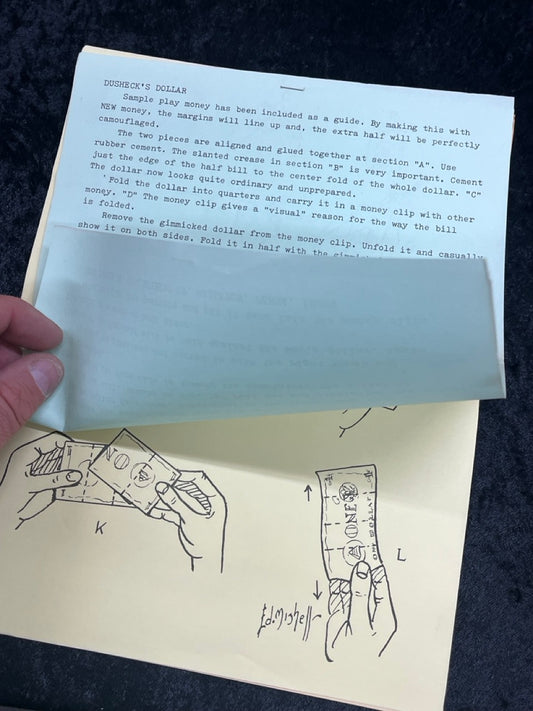 DUSHECK'S DOLLAR
Sample play money has been included as a guide. By making this with
NEW money, the margins will line up and, the extra half will be perfectly
camouflaged.
The two pieces are aligned and glued together at section "A". Use
rubber cement. The slanted crease in section "B" is very important. Cement
just the edge of the half bill to the center fold of the whole dollar. "C"
The dollar now looks quite ordinary and unprepared.
Fold the dollar into quarters and carry it in a money clip with other
money. "D" The money clip gives a "visual" reason for the way the bill
is folded.
Remove the gimmicked dollar from the money clip. Unfold it and casually
show it on both sides. Fold it in half with the
K
ONE
ONE DOLLAR
L
Ed. Mishell